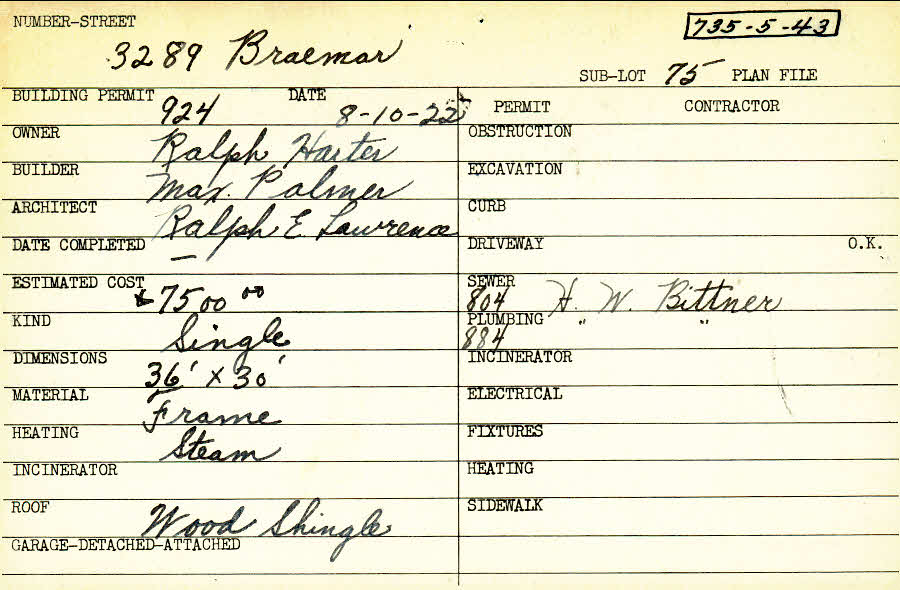 NUMBER-STREET
735-5-43
3289 Braemar
SUB-LOT 75 PLAN FILE
BUILDING PERMIT 924 DATE 8-10-22
PERMIT CONTRACTOR
OWNER Ralph Harter
OBSTRUCTION
BUILDER Max. Palmer
EXCAVATION
ARCHITECT Ralph E. Lawrence
CURB
DATE COMPLETED —
DRIVEWAY O.K.
ESTIMATED COST $7500 00
SEWER 804 H. W. Bittner
KIND Single
PLUMBING 884 " "
DIMENSIONS 36' x 30'
INCINERATOR
MATERIAL Frame
ELECTRICAL
HEATING Steam
FIXTURES
INCINERATOR
HEATING
ROOF Wood Shingle
SIDEWALK
GARAGE-DETACHED-ATTACHED